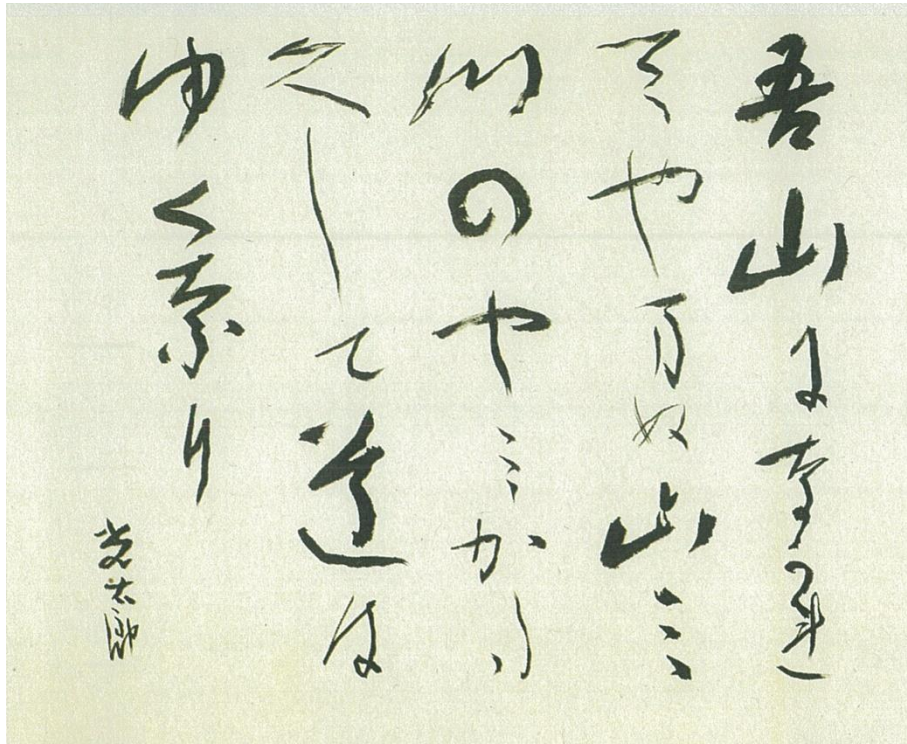 吾山にながれ
てや万ぬ山三
川のやミかた
久して道は
ゆく奈り
光太郎